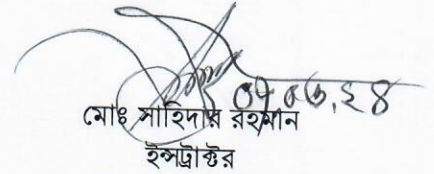 ০৭.০৬.২৪
মোঃ সাহিদার রহমান
ইন্সট্রাক্টর